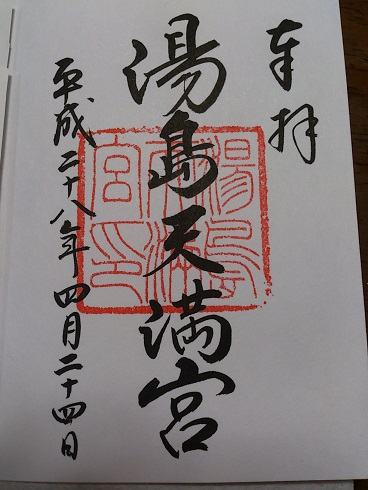 奉拝
湯島天満宮
湯島天満宮印
平成二十八年四月二十四日